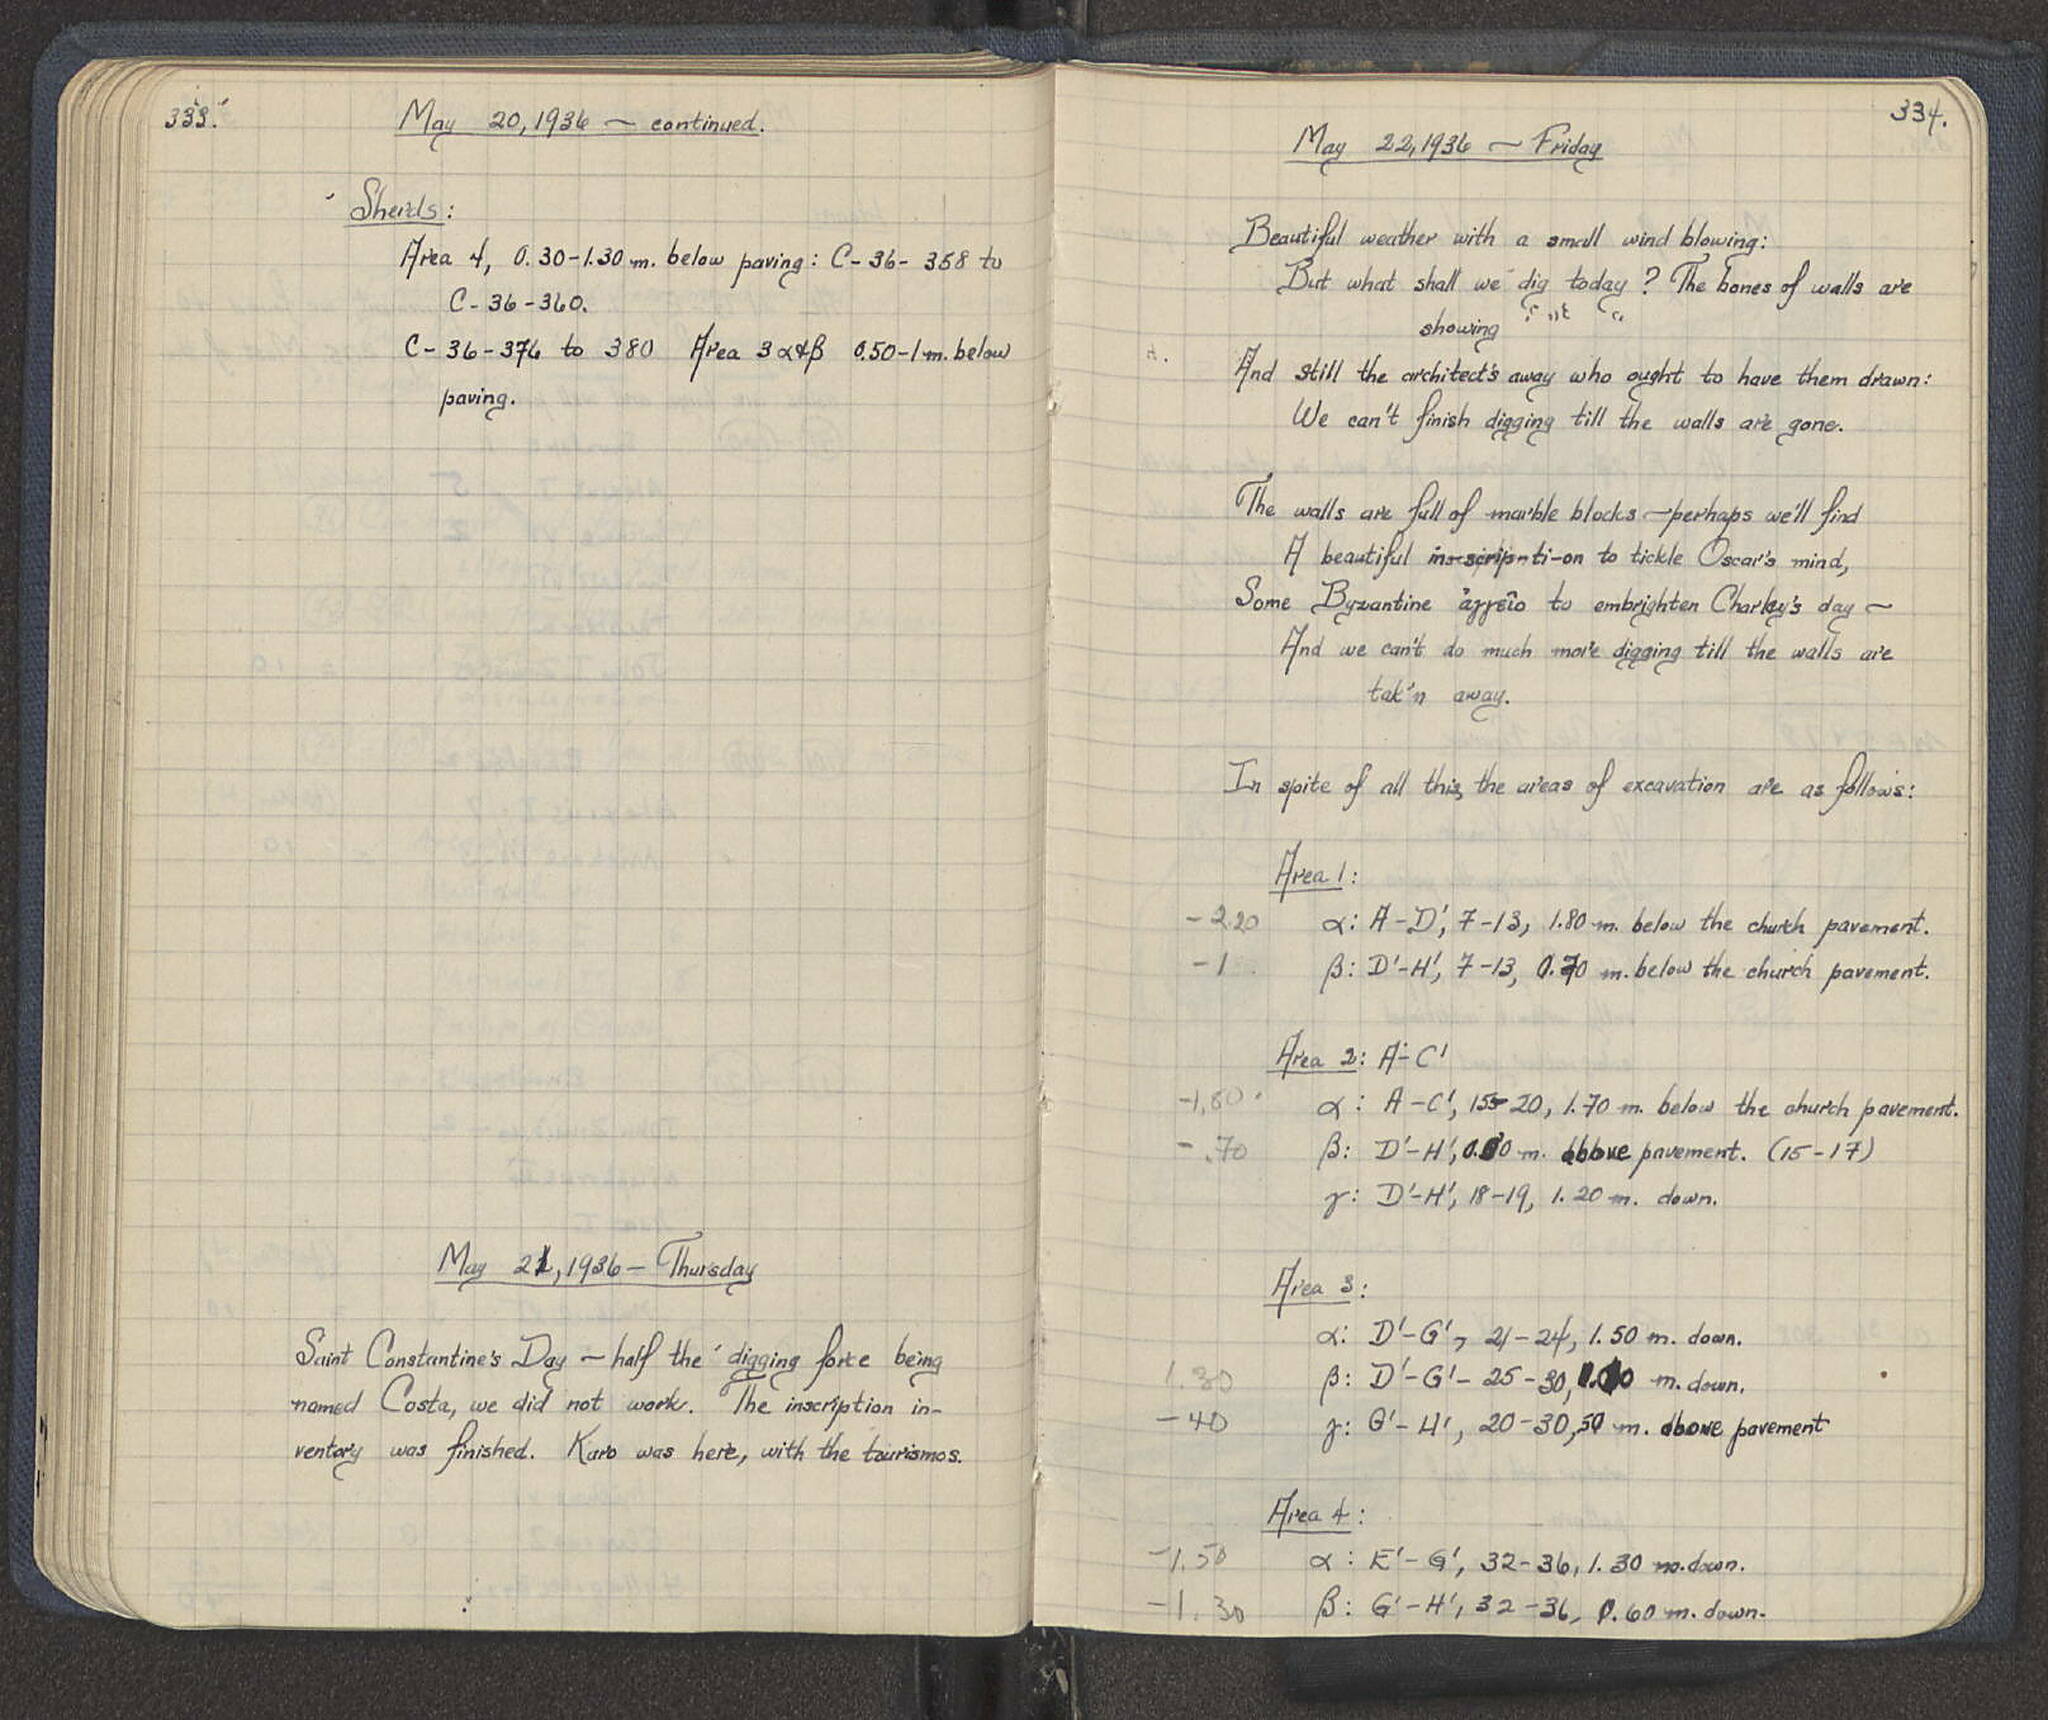 333.
May 20, 1936 — continued.
Sherds:
Area 4, 0.30-1.30 m. below paving: C-36-358 to
C-36-360.
C-36-376 to 380 Area 3 α&β 0.50-1 m. below
paving.
May 21, 1936 — Thursday
Saint Constantine's Day — half the digging force being
named Costa, we did not work. The inscription in-
ventory was finished. Karo was here, with the tourismos.
334.
May 22, 1936 — Friday
Beautiful weather with a small wind blowing:
But what shall we dig today? The bones of walls are
showing
And still the architect's away who ought to have them drawn:
We can't finish digging till the walls are gone.
The walls are full of marble blocks — perhaps we'll find
A beautiful in-scrip-ti-on to tickle Oscar's mind,
Some Byzantine ἀγγεῖο to embrighten Charley's day —
And we can't do much more digging till the walls are
tak'n away.
In spite of all this, the areas of excavation are as follows:
Area 1:
-2.20 α: A-D', 7-13, 1.80 m. below the church pavement.
-1 β: D'-H', 7-13, 0.70 m. below the church pavement.
Area 2: A-C'
-1.80 α: A-C', 15-20, 1.70 m. below the church pavement.
-.70 β: D'-H', m. above pavement. (15-17)
γ: D'-H', 18-19, 1.20 m. down.
Area 3:
α: D'-G', 21-24, 1.50 m. down.
1.30 β: D'-G'- 25-30, m. down.
-40 γ: G'-H', 20-30, 50 m. above pavement
Area 4:
-1.50 α: E'-G', 32-36, 1.30 m. down.
-1.30 β: G'-H', 32-36, 0.60 m. down.